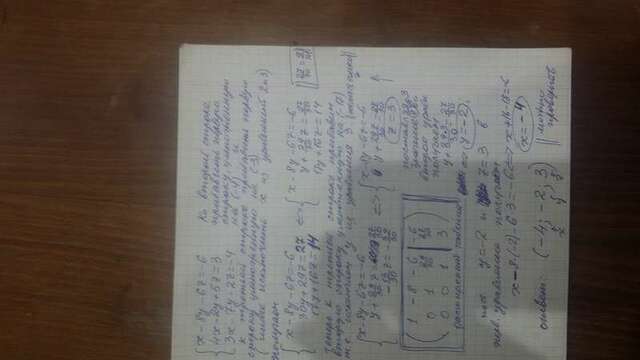 x - 8y - 6z = -6
4x - 2y + 5z = 3
3x - 7y - 2z = -4
Ко второй строке
прибавить первую
строку, умноженную
на (-4) и
к третьей строке прибавить первую
строку умноженную на (-3)
исключить x из уравнений 2 и 3)
получаем
x - 8y - 6z = -6
30y + 29z = 27
17y + 16z = 14
<=>
x - 8y - 6z = -6
y + 29/30 z = 27/30
17y + 16z = 14
27/30 = 9/10
теперь к третьей строке прибавим
вторую строку умноженную на (-17)
т.е. исключим y из уравнения 3
x - 8y - 6z = -6
y + 29/30 z =
<=>
x - 8y - 6z = -6
y + 29/30 z = 27/30
z = 3
1 -8 -6 -6
0 1
0 0 1 3
расширенная
z = 3
второе уравн.
получаем
y + 29·3/30 = 27/30
<=> y = -2;
y = -2 и z = 3 в
перв. уравнение получаем
x - 8·(-2) - 6·3 = -6 <=> x + 16 - 18 = -6
x = -4
ответ: (-4; -2; 3)
x y z
можно
проверить